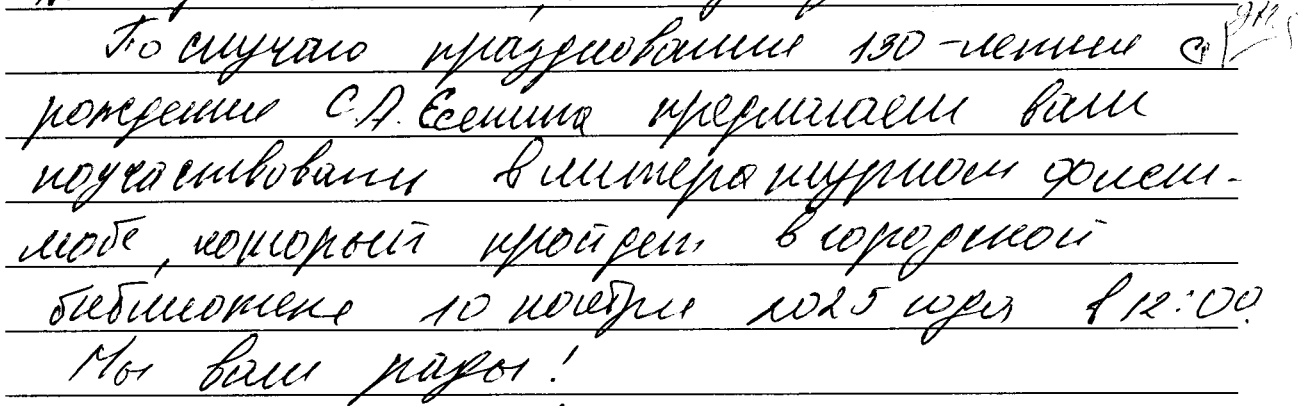 По случаю празднования 130-летия с
рождения С.А. Есенина предлагаем вам
поучаствовать в литературном флеш-
мобе, который пройдет в городской
библиотеке 10 ноября 2025 года в 12:00.
Мы вам рады!